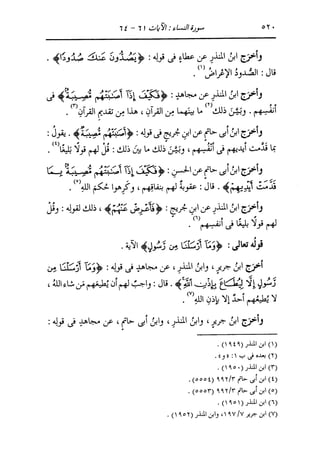 ٥٢٠ سورة النساء : الآيات ٦١ - ٦٤
وأخرج ابنُ المنذرِ عن عطاءٍ فى قولِه : ﴿يَصُدُّونَ عَنكَ صُدُودًا﴾ .
قال : الصُّدودُ الإعراضُ(١) .
وأخرج ابنُ المنذرِ عن مجاهدٍ : ﴿فَكَيْفَ إِذَآ أَصَٰبَتْهُم مُّصِيبَةٌ﴾ فى
أنفُسِهم . وبَيَّن ذلك(٢) ما بينَهما من القرآنِ ، هذا مِن تقديمِ القرآنِ(٣) .
وأخرَج ابنُ أبى حاتمٍ عن ابنِ جُريجٍ فى قولِه : ﴿أَصَٰبَتْهُم مُّصِيبَةٌ﴾ . يقولُ :
بما قدَّمت أيديهم فى أنفُسِهم ، وبَيَّنَ ذلك ما بينَ ذلك : قُل لهم قولًا بليغًا(٤) .
وأخرَج ابنُ أبى حاتمٍ عن الحسنِ : ﴿فَكَيْفَ إِذَآ أَصَٰبَتْهُم مُّصِيبَةٌۢ بِمَا
قَدَّمَتْ أَيْدِيهِمْ﴾ . قال : عقوبةٌ لهم بنفاقِهم ، وكرِهوا حُكمَ اللهِ(٥) .
وأخرَج ابنُ المنذرِ عن ابنِ جُريجٍ : ﴿فَأَعْرِضْ عَنْهُمْ﴾ ، ذلك لقولِه : وقُلْ
لهم قولًا بليغًا فى أنفسِهم(٦) .
قولُه تعالى : ﴿وَمَآ أَرْسَلْنَا مِن رَّسُولٍ﴾ الآية .
أخرَج ابنُ جريرٍ ، وابنُ المنذرِ ، عن مجاهدٍ فى قولِه : ﴿وَمَآ أَرْسَلْنَا مِن
رَّسُولٍ إِلَّا لِيُطَاعَ بِإِذْنِ ٱللَّهِ﴾ . قال : واجبٌ لهم أن يُطيعَهم مَن شاء اللهُ ،
لا يُطيعُهم أحدٌ إلا بإذنِ اللهِ(٧) .
وأخرَج ابنُ جريرٍ ، وابنُ المنذرِ ، وابنُ أبى حاتمٍ ، عن مجاهدٍ فى قولِه :
(١) ابن المنذر (١٩٤٩) .
(٢) بعده فى ب ١: « و » .
(٣) ابن المنذر (١٩٥٠) .
(٤) ابن أبى حاتم ٩٩٢/٣ (٥٥٥٤) .
(٥) ابن أبى حاتم ٩٩٢/٣ (٥٥٥٣) .
(٦) ابن المنذر (١٩٥١) .
(٧) ابن جرير ١٩٧/٧، وابن المنذر (١٩٥٢) .